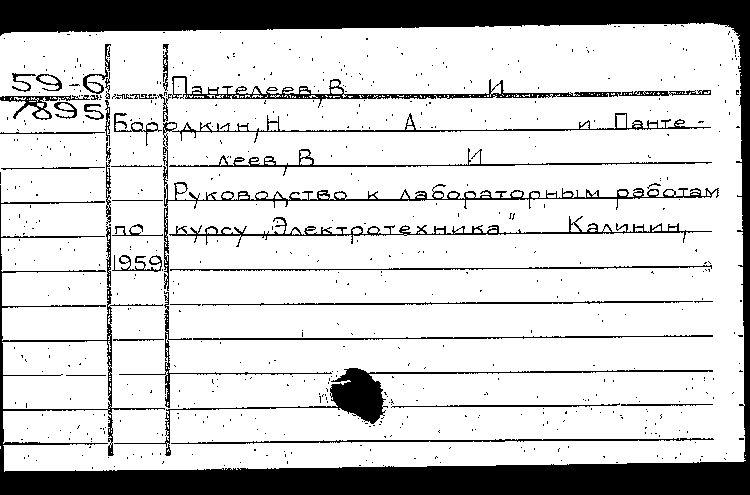 59-6 Пантелеев, В И
7895
Бородкин, Н А и Панте-
леев, В И
Руководство к лабораторным работам
по курсу „Электротехника". Калинин,
1959